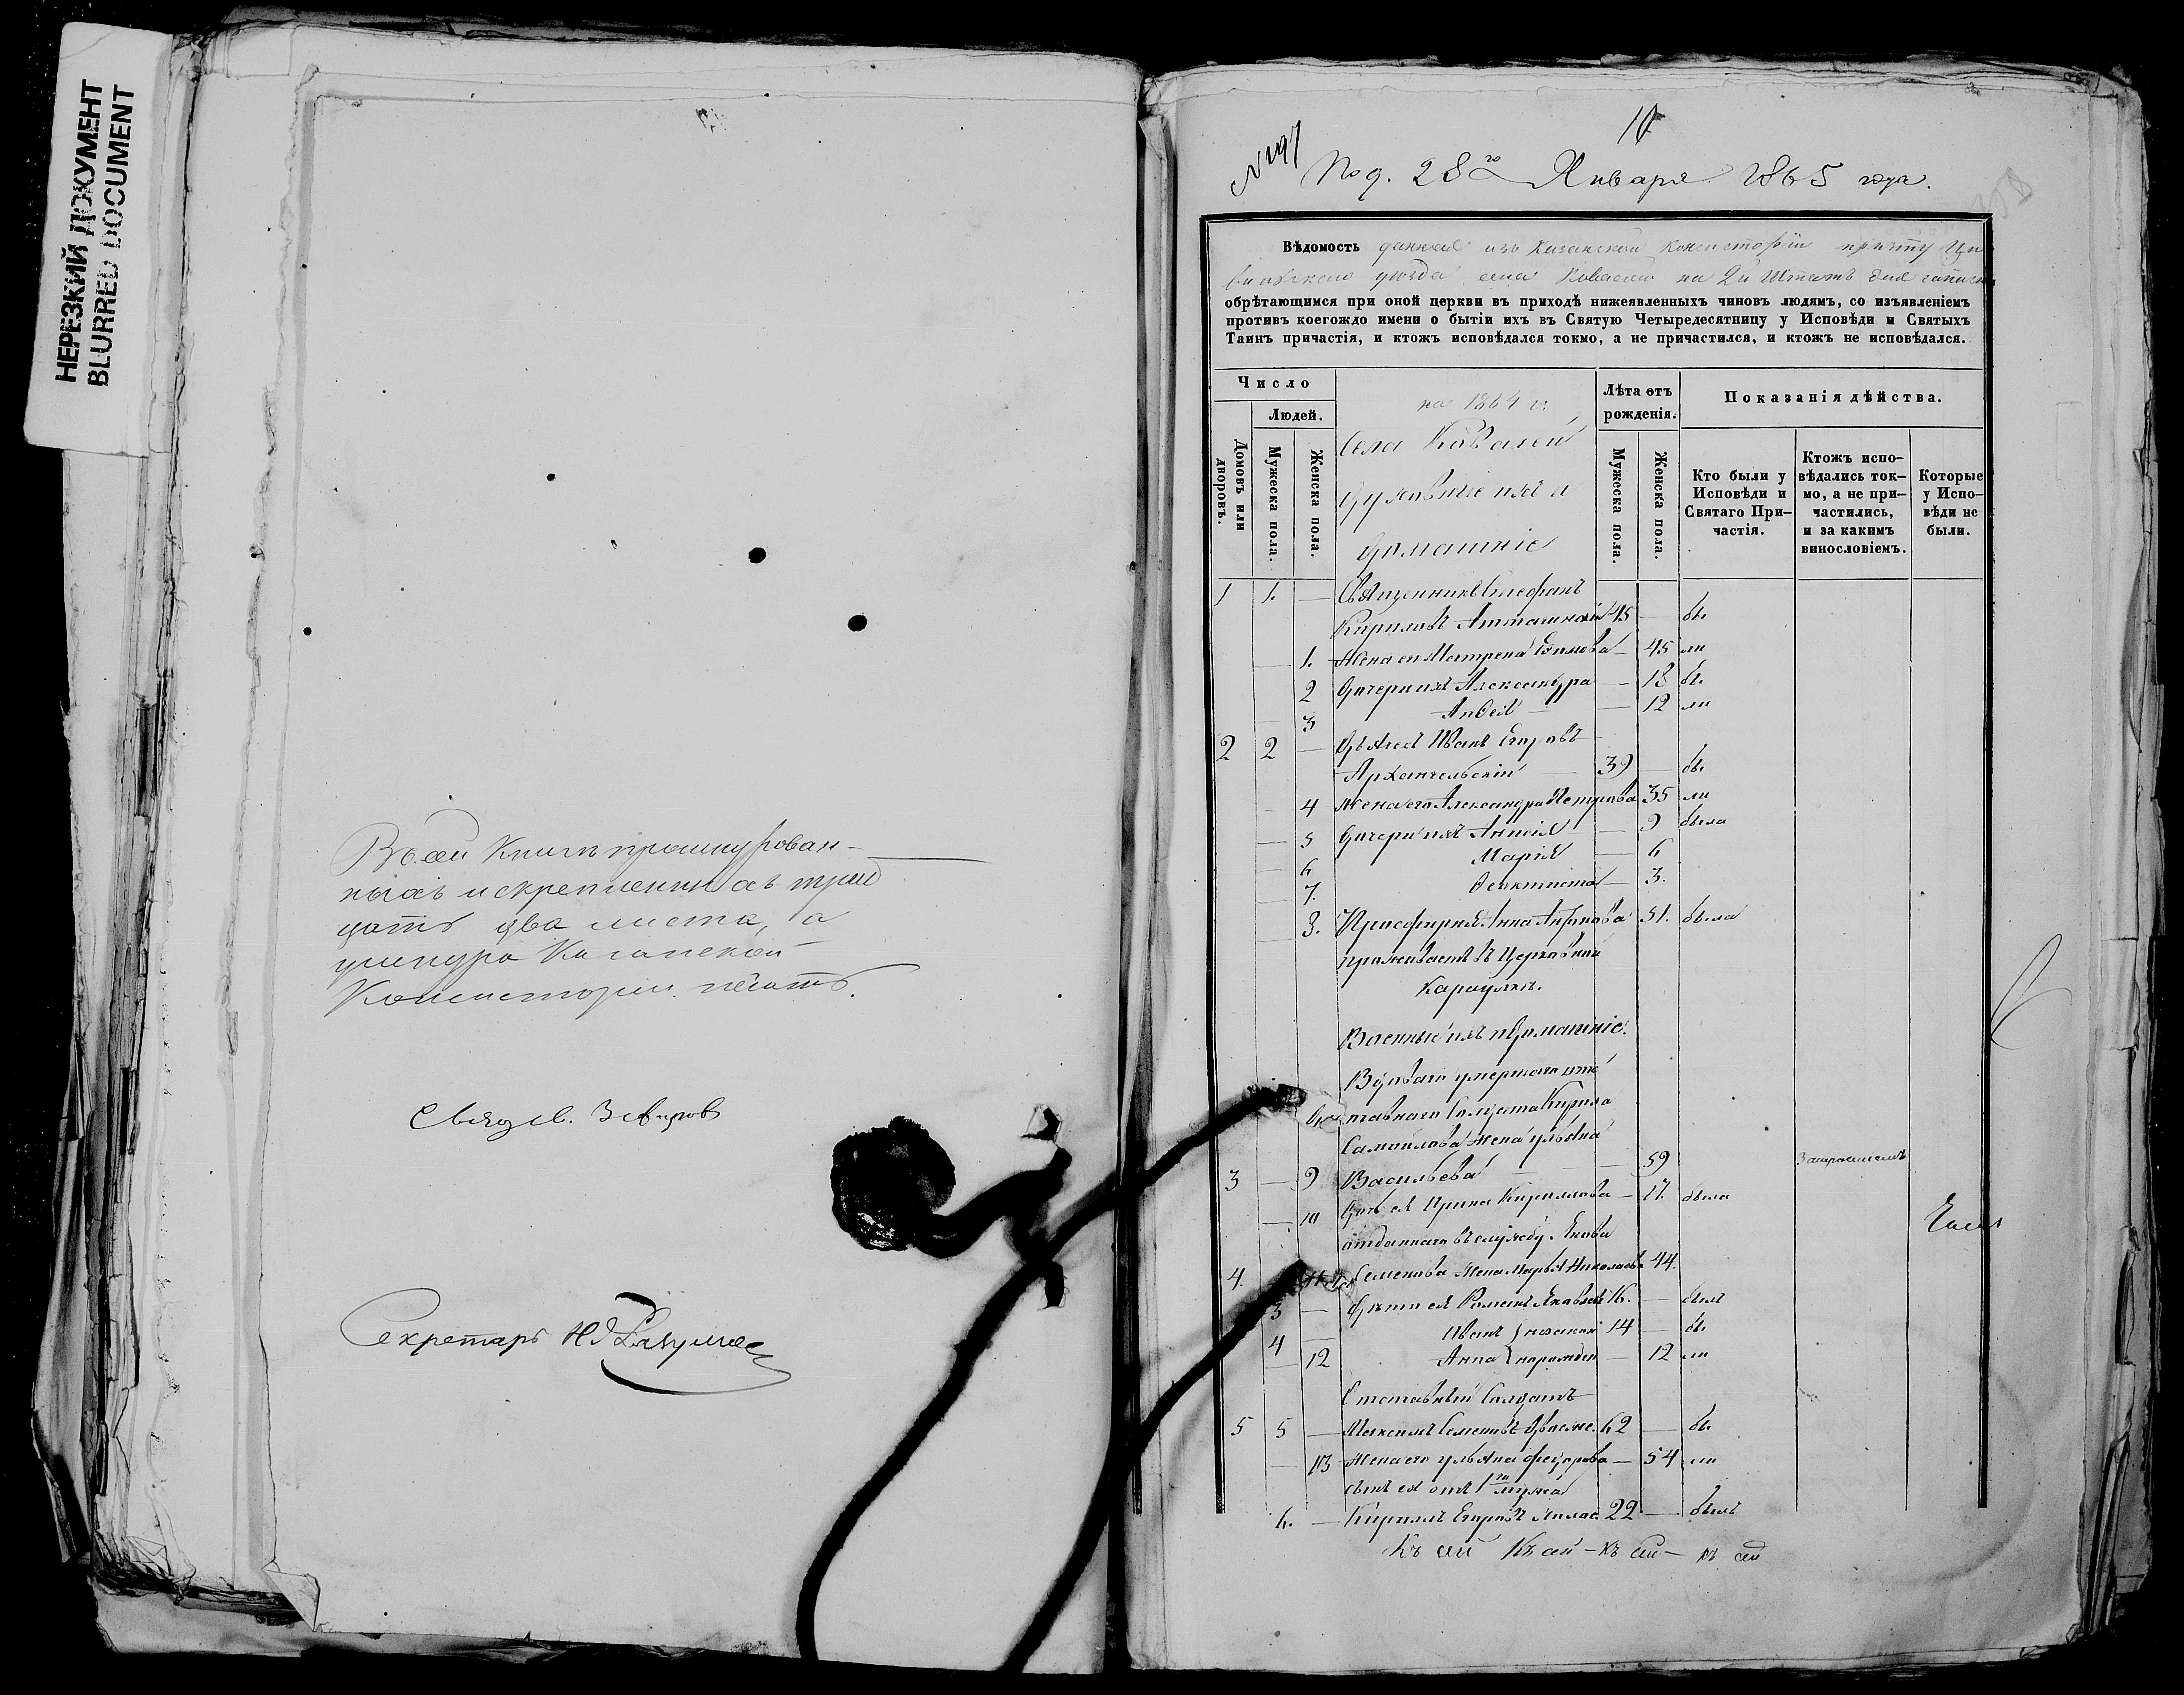 НЕРЕЗКИЙ ДОКУМЕНТ
BLURRED DOCUMENT
Въ сей Книгѣ прошнурован-
ныхъ и скрепленныхъ трид
цать два листа, а
у шнура Казанской
Консисторіи печать.
Секретарь
10
№ 197
Под. 28го Января 1865 года.
Вѣдомость данная изъ Казанской Консисторіи причту Ци
вильскаго уѣзда села Ковалей на 2й Штатъ для записи
обрѣтающимся при оной церкви въ приходѣ нижеявленныхъ чиновъ людямъ, со изъявленіемъ
противъ коегождо имени о бытіи ихъ въ Святую Четыредесятницу у Исповѣди и Святыхъ
Таинъ причастія, и ктожъ исповѣдался токмо, а не причастился, и ктожъ не исповѣдался.
Число
Людей.
Домовъ или дворовъ.
Мужеска пола.
Женска пола.
на 1864 г.
Села Ковалей
Духовные и ихъ
домашніе
Лѣта отъ рожденія.
Мужеска пола.
Женска пола.
Показанія дѣйства.
Кто были у Исповѣди и Святаго При-
частія.
Ктожъ испо-
вѣдались ток-
мо, а не при-
частились,
и за какимъ
винословіемъ.
Которые
у Испо-
вѣди не
были.
1 1. — Священникъ Стефанъ
Кириловъ 45 — бы
1. Жена его Матрена — 45 ли
2 Дочери ихъ Александра — 18 бы
3 — 12 ли
2 2 — Дьячекъ Иванъ Егоровъ
Архангельскій 39 — бы
4 Жена его Александра Петрова 35 ли
5 Дочери ихъ — 9 была
6 Марія — 6
7. Феоктиста — 3.
8. Просфирня Анна 51. была
проживаетъ въ Церковной
Караулкѣ.
Военные и ихъ домашніе.
Вдоваго умершаго
отставнаго Солдата Кирила
Самойлова жена Ульяна
3 — 9 Васильева — 59
10 Дочь ея Ирина Кириллова — 17. была
отданнаго въ службу Якова
4. 11 Семенова жена Марья Николаева 44.
3 — Дѣти ея Романъ Яковлевъ 16. — былъ
4 — Иванъ 14 — бы
12 Анна — 12 ли
Отставный Солдатъ
5 5 — Максимъ Семеновъ 62 — бы
13 Жена его Ульяна Федорова — 54 ли
сынъ ея отъ 1го мужа
6. — Кирилъ Егоровъ 22 — былъ
Къ сей Къ сей — къ сей — къ сей